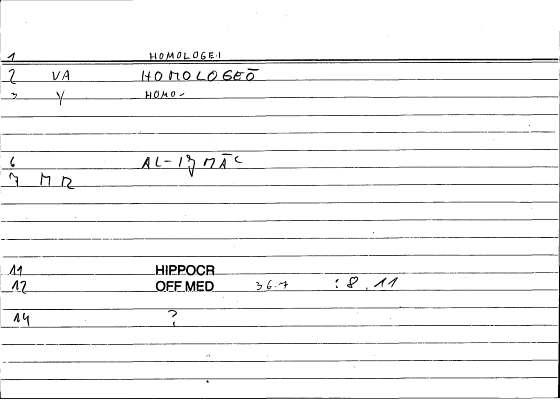 1 HOMOLOGEI
2 VA HOMOLOGEŌ
3 Y HOMO-
6 AL-IʒMĀC
7 M R
11 HIPPOCR
12 OFF MED 36.7 :8.11
14 ?